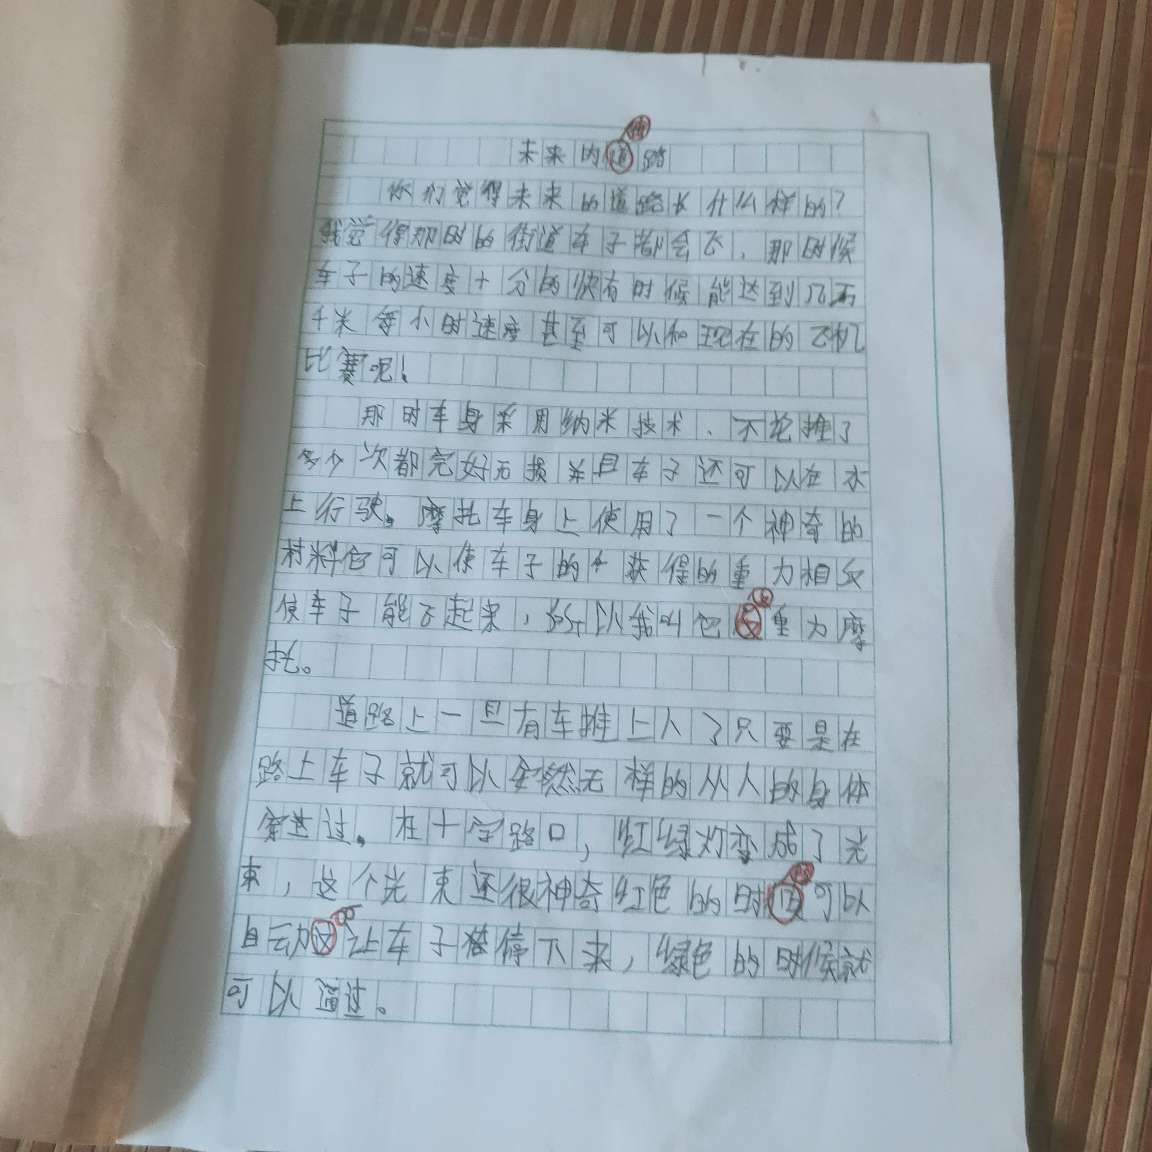 未来的道路
你们觉得未来的道路长什么样的？
我觉得那时的街道车子都会飞，那时候
车子的速度十分的快有时候能达到几百
千米每小时速度甚至可以和现在的飞机
比赛呢！
那时车身采用纳米技术、不论撞了
多少次都完好无损并且车子还可以在水
上行驶。摩托车身上使用了一个神奇的
材料它可以使车子的个获得的重力相反
使车子能飞起来，所以我叫它反重力摩
托。
道路上一旦有车撞上人了只要是在
路上车子就可以安然无样的从人的身体
穿过过。在十字路口，红绿灯变成了光
束，这个光束还很神奇红色的时候可以
自动让车子停下来，绿色的时候就
可以通过。